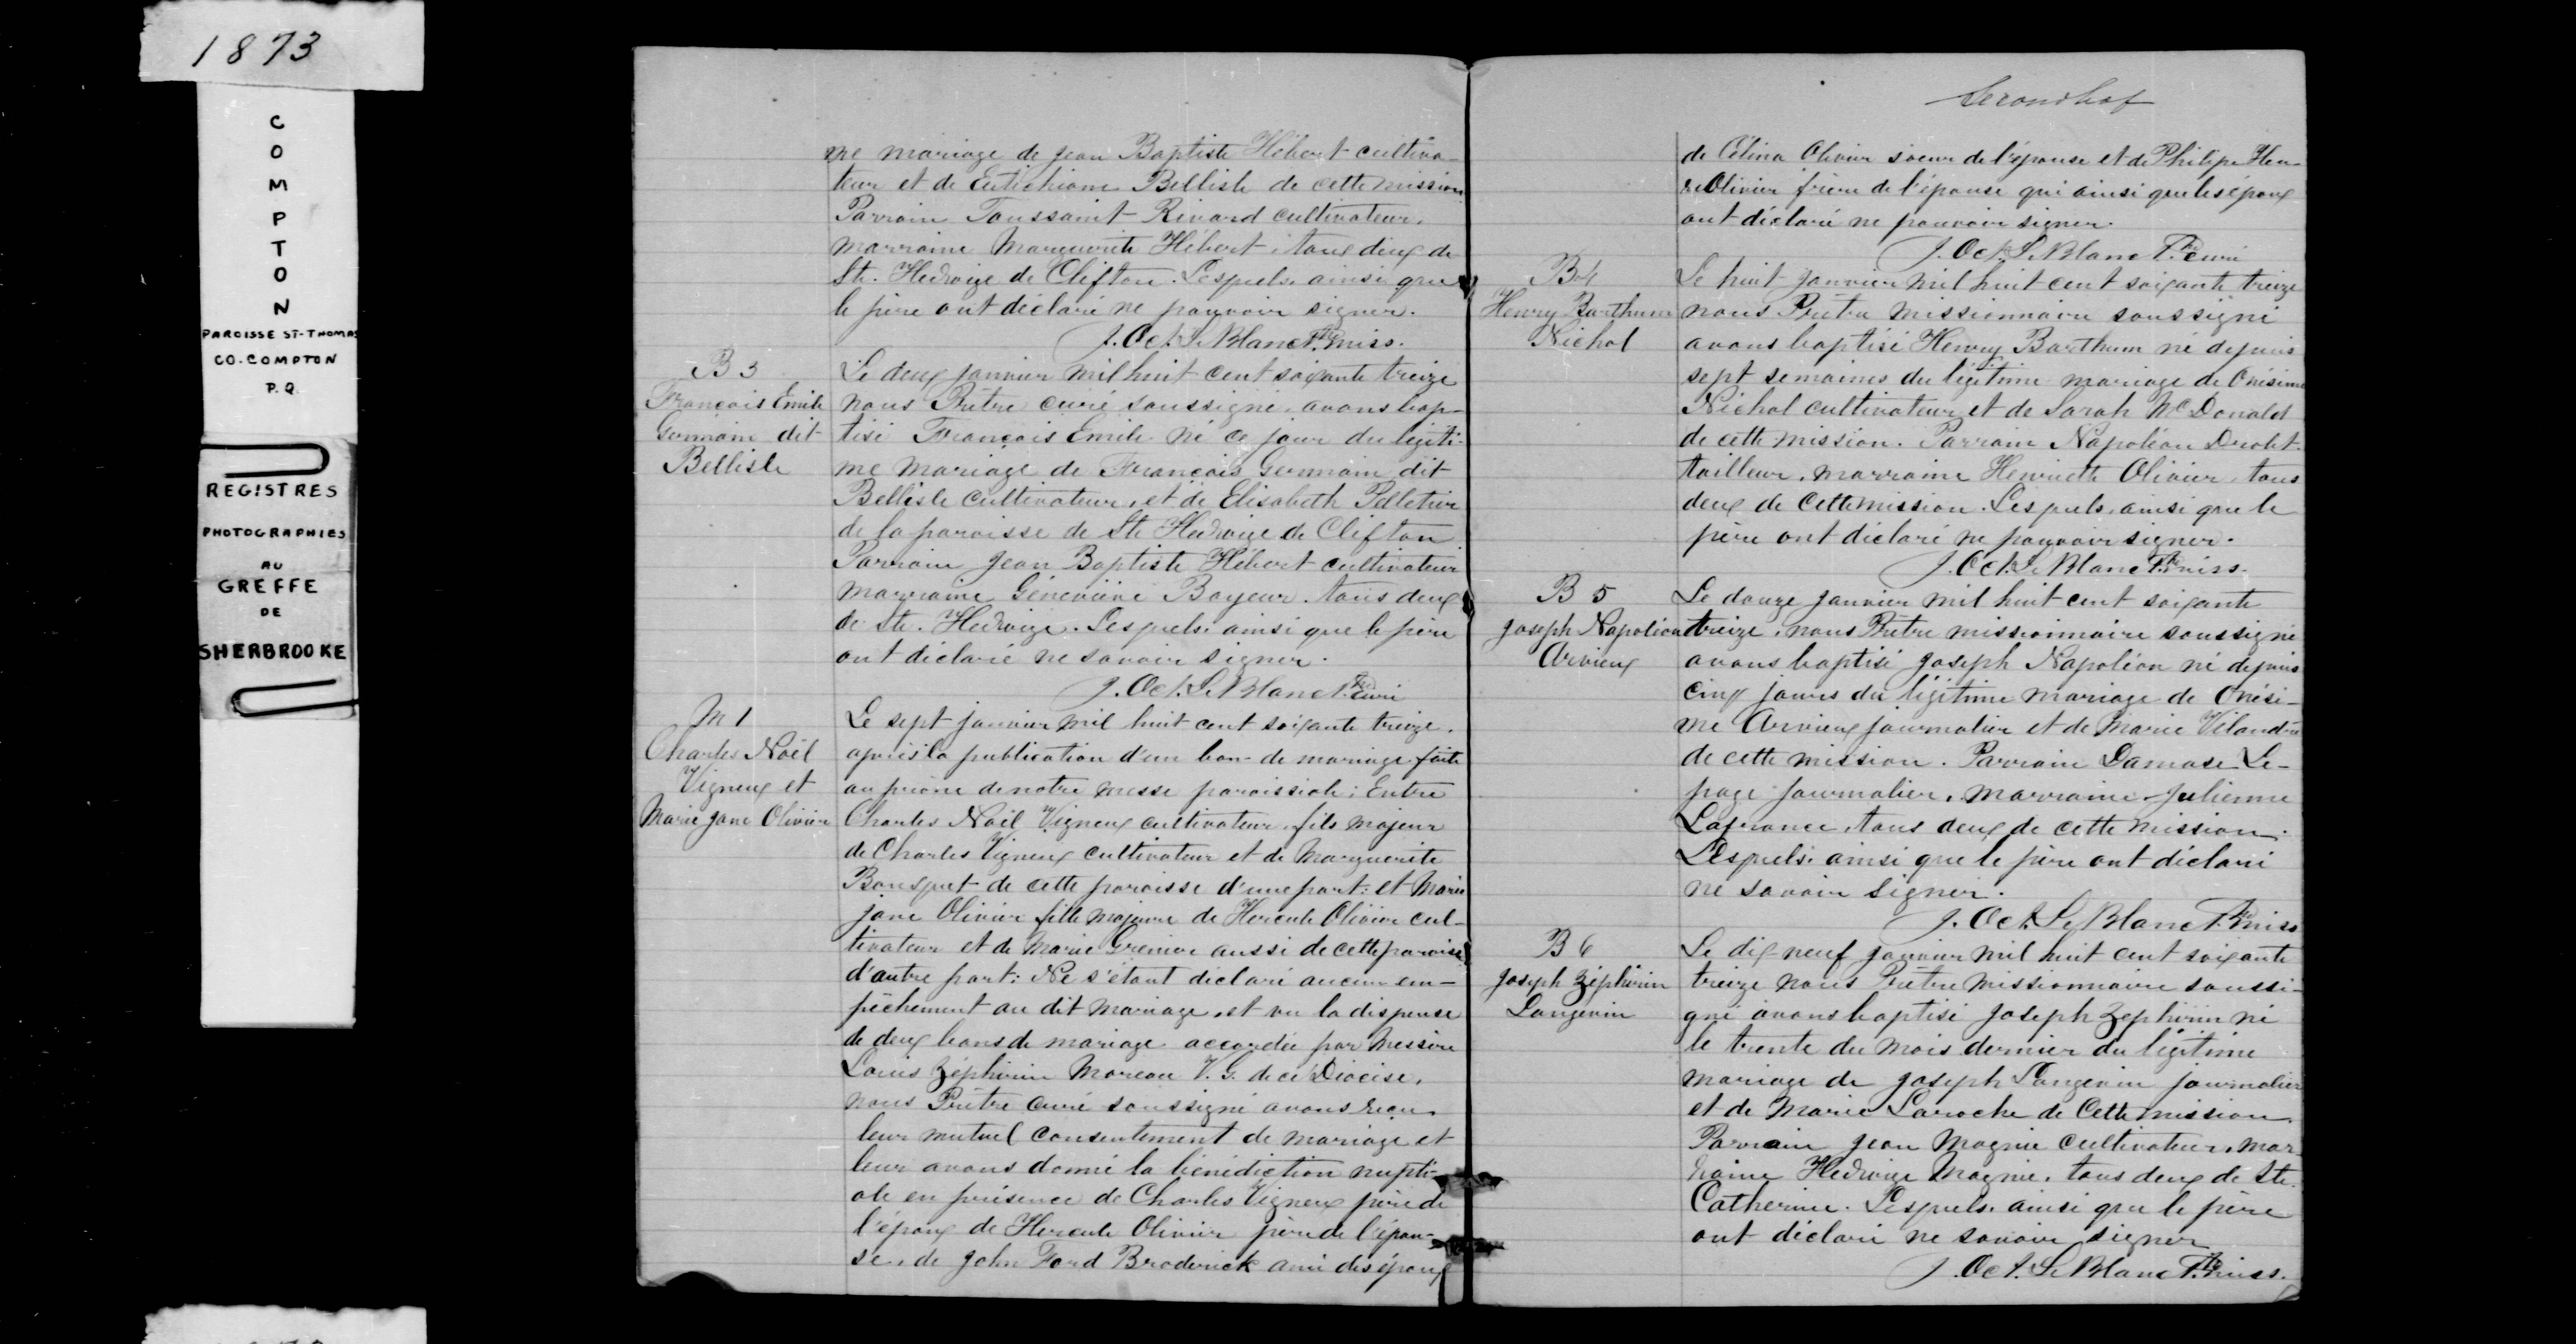 1873
COMPTON
PAROISSE ST-THOMAS
CO. COMPTON
P.Q.
REGISTRES
PHOTOGRAPHIES
AU
GREFFE
DE
SHERBROOKE
me mariage de Jean Baptiste Hébert cultiva-
teur et de Eutichiane Bellisle de cette mission
Parrain Toussaint Rivard cultivateur,
marraine Marguerite Hébert, tous deux de
Ste. Hedwige de Clifton. Lesquels, ainsi que
le père ont déclaré ne pouvoir signer.
J. Oct. Le Blanc Ptre miss.
B 3
François Emile
Germain dit
Bellisle
Le deux janvier mil huit cent soixante treize
nous Prêtre curé soussigné, avons bap-
tisé François Emile né ce jour du légiti-
me mariage de François Germain dit
Bellisle cultivateur, et de Elisabeth Pelletier
de la paroisse de Ste Hedwige de Clifton
Parrain Jean Baptiste Hébert cultivateur
marraine Géneviève Boyeur, tous deux
de Ste. Hedwige. Lesquels, ainsi que le père
ont déclaré ne savoir signer.
J. Oct. Le Blanc Ptre curé
M 1
Charles Noël
Vigneux et
Marie Jane Olivier
Le sept janvier mil huit cent soixante treize,
après la publication d'un ban de mariage faite
au prône de notre messe paroissiale: Entre
Charles Noël Vigneux cultivateur, fils majeur
de Charles Vigneux cultivateur et de Marguerite
Bousquet de cette paroisse d'une part: et Marie
jane Olivier fille majeure de Hercule Olivier cul-
tivateur et de Marie Grenier aussi de cette paroisse
d'autre part: Ne s'étant déclaré aucun em-
pêchement au dit mariage, et vu la dispense
de deux bans de mariage accordée par Messire
Louis Zéphirin Moreau V. G. de ce Diocèse,
nous Prêtre curé soussigné avons reçu
leur mutuel consentement de mariage et
leur avons donné la bénédiction nupti-
ale en présence de Charles Vigneux père de
l'époux de Hercule Olivier père de l'épou-
se, de John Ford Broderick ami des époux
de Célina Olivier soeur de l'épouse et de Philipe Hen-
re Olivier frère de l'épouse qui ainsi que les époux
ont déclaré ne pouvoir signer.
J. Oct. Le Blanc Ptre curé
B 4
Henry Barthum
Nichol
Le huit janvier mil huit cent soixante treize
nous Prêtre Missionnaire soussigné
avons baptisé Henry Barthum né depuis
sept semaines du légitime mariage de Onésime
Nichol cultivateur et de Sarah McDonald
de cette mission. Parrain Napoléon Drolet
tailleur, marraine Henriette Olivier, tous
deux de cette mission. Lesquels ainsi que le
père ont déclaré ne pouvoir signer.
J. Oct. Le Blanc Ptre miss.
B 5
Joseph Napoléon
Arvieux
Le douze janvier mil huit cent soixante
treize, nous Prêtre missionnaire soussigné
avons baptisé Joseph Napoléon né depuis
cinq jours du légitime mariage de Onési-
me Arvieux journalier et de Marie Vilandré
de cette mission. Parrain Damase Le-
page journalier, marraine Julienne
Lafrance, tous deux de cette mission.
Lesquels ainsi que le père ont déclaré
ne savoir signer.
J. Oct. Le Blanc Ptre miss
B 6
Joseph Zéphirin
Langevin
Le dix-neuf janvier mil huit cent soixante
treize nous Prêtre Missionnaire soussi-
gné avons baptisé Joseph Zéphirin né
le trente du mois dernier du légitime
mariage de Joseph Langevin journalier
et de Marie Laroche de cette mission
Parrain Jean Magnie cultivateur, mar-
raine Hedwige Magnie, tous deux de Ste.
Catherine. Lesquels, ainsi que le père
ont déclaré ne savoir signer
J. Oct. Le Blanc Ptre miss.